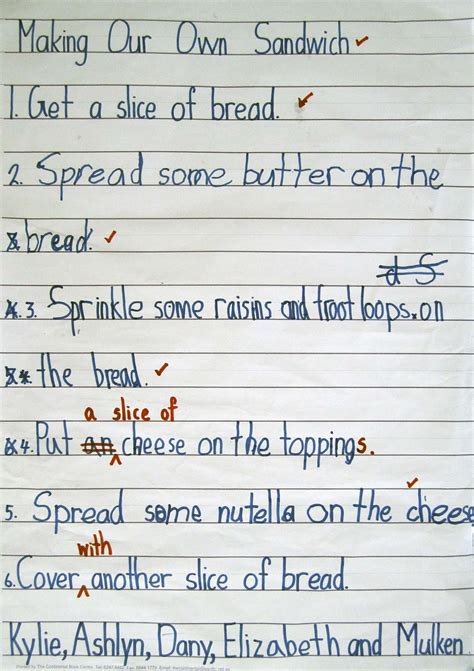 Making Our Own Sandwich
1. Get a slice of bread.
2. Spread some butter on the
bread.
d S
3. Sprinkle some raisins and froot loops on
the bread.
a slice of
4. Put an cheese on the toppings.
5. Spread some nutella on the cheese
with
6. Cover another slice of bread.
Kylie, Ashlyn, Dany, Elizabeth and Mulken.